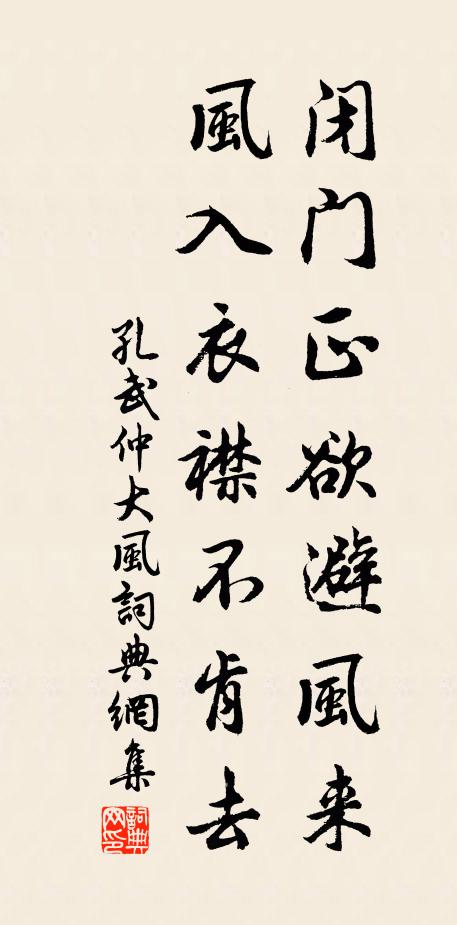 闭門正欲避風来
風入衣襟不肯去
孔武仲大風詞典網集
詞典网印